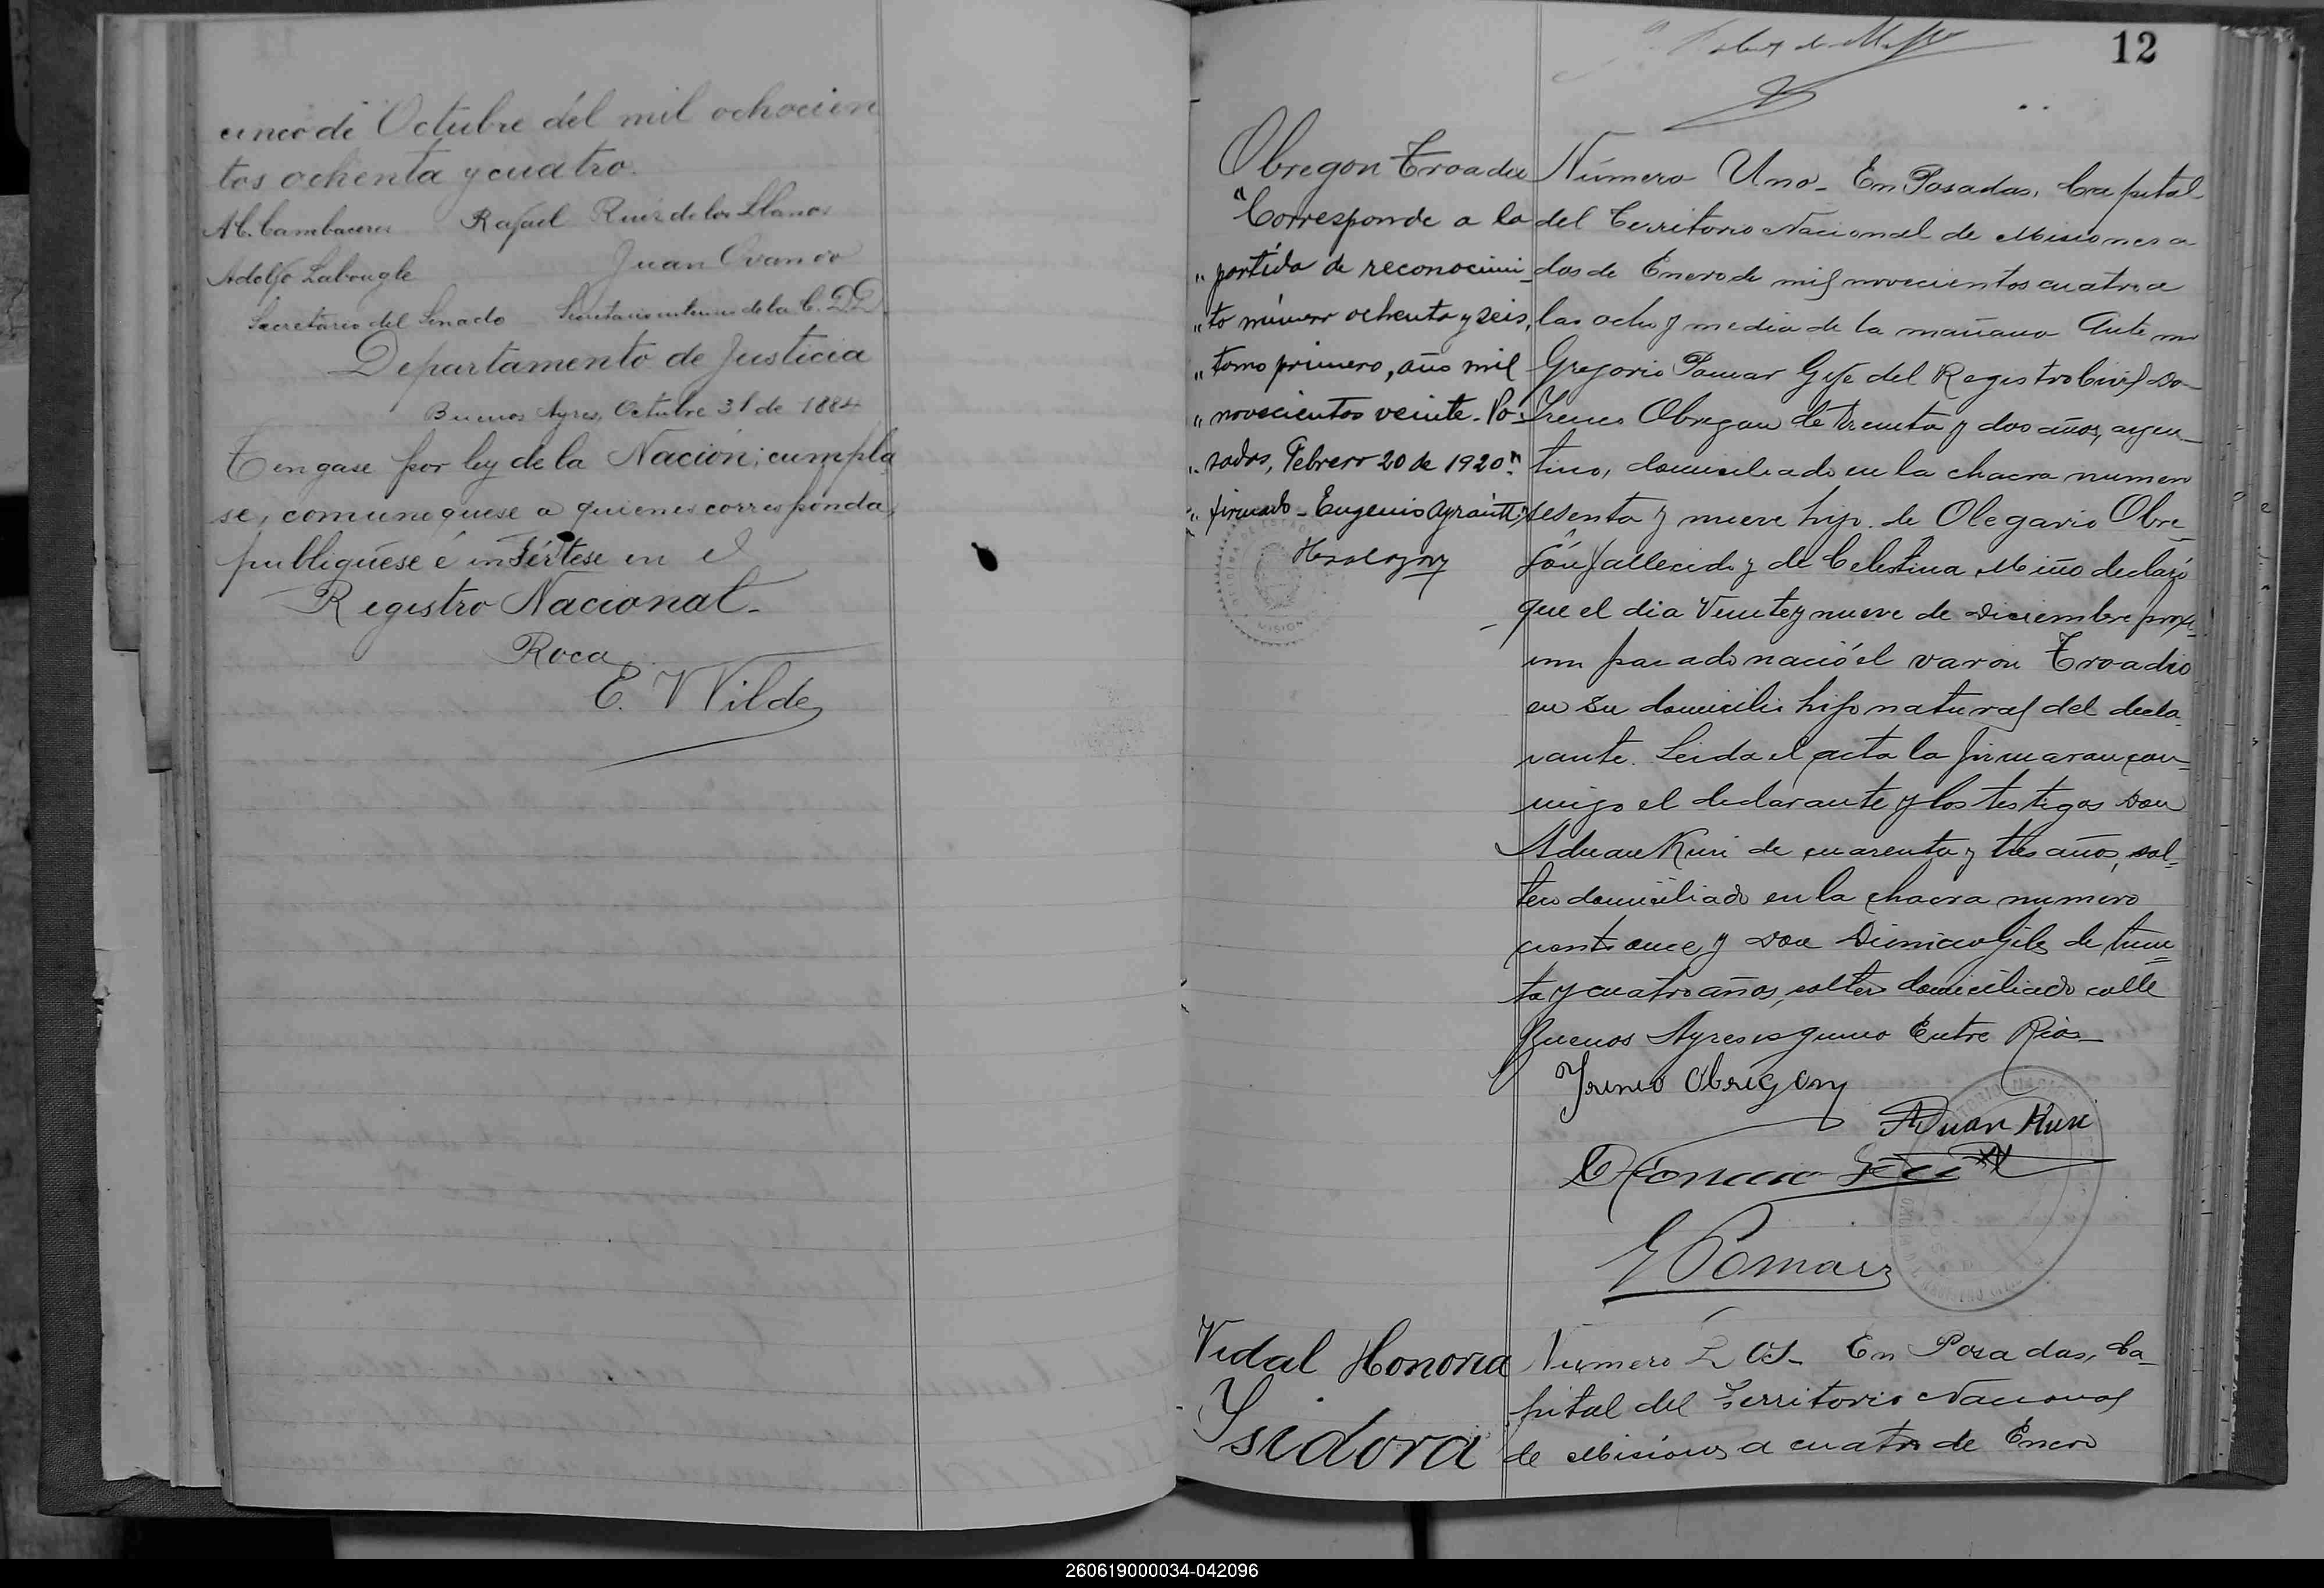 cinco de Octubre del mil ochocien
tos ochenta y cuatro.
A C. Cambaceres Rafael Ruiz de los Llanos
Adolfo Labougle Juan Ovando
Secretario del Senado Secretario interino de la C. DD.
Departamento de Justicia
Buenos Ayres, Octubre 31 de 1884
Tengase por ley de la Nación; cumpla
se, comuniquese a quienes corresponda,
publiquese é insértese en el
Registro Nacional.
Roca
E. Wilde
12
Obregon Troadio
"Corresponde a la
" partida de reconocimi-
" to número ochenta y seis,
" tomo primero, año mil
" novecientos veinte. Po-
" sadas, Febrero 20 de 1920"
" firmado - Eugenio
REGISTRO NACIONAL
Número Uno - En Posadas, Capital
del Territorio Nacional de Misiones a
dos de Enero de mil novecientos cuatro a
las ocho y media de la mañana Ante mi
Gregorio Pomar Gefe del Registro Civil Do
Ireneo Obregon de treinta y dos años, argen-
tino, domiciliado en la chacra numero
sesenta y nueve hijo de Olegario Obre-
gón fallecido y de Celestina Miño declaró
que el dia Veinte y nueve de Diciembre proxi-
mo pasado nació el varon Troadio
en su domicilio hijo natural del decla-
rante. Leida el acta la firmaran con-
migo el declarante y los testigos Don
Aduan Kuri de cuarenta y tres años, sol-
tero domiciliado en la chacra numero
ciento once y Don Dionicio Gil de trein-
ta y cuatro años, soltero domiciliado calle
Buenos Ayres esquina Entre Rios-
Yrineo Obregon
ADuan Kuri
Dionicio Gil
G Pomar
Vidal Honoria
Ysidora
Número Dos - En Posadas, Ca-
pital del Territorio Nacional
de Misiones a cuatro de Enero
260619000034-042096